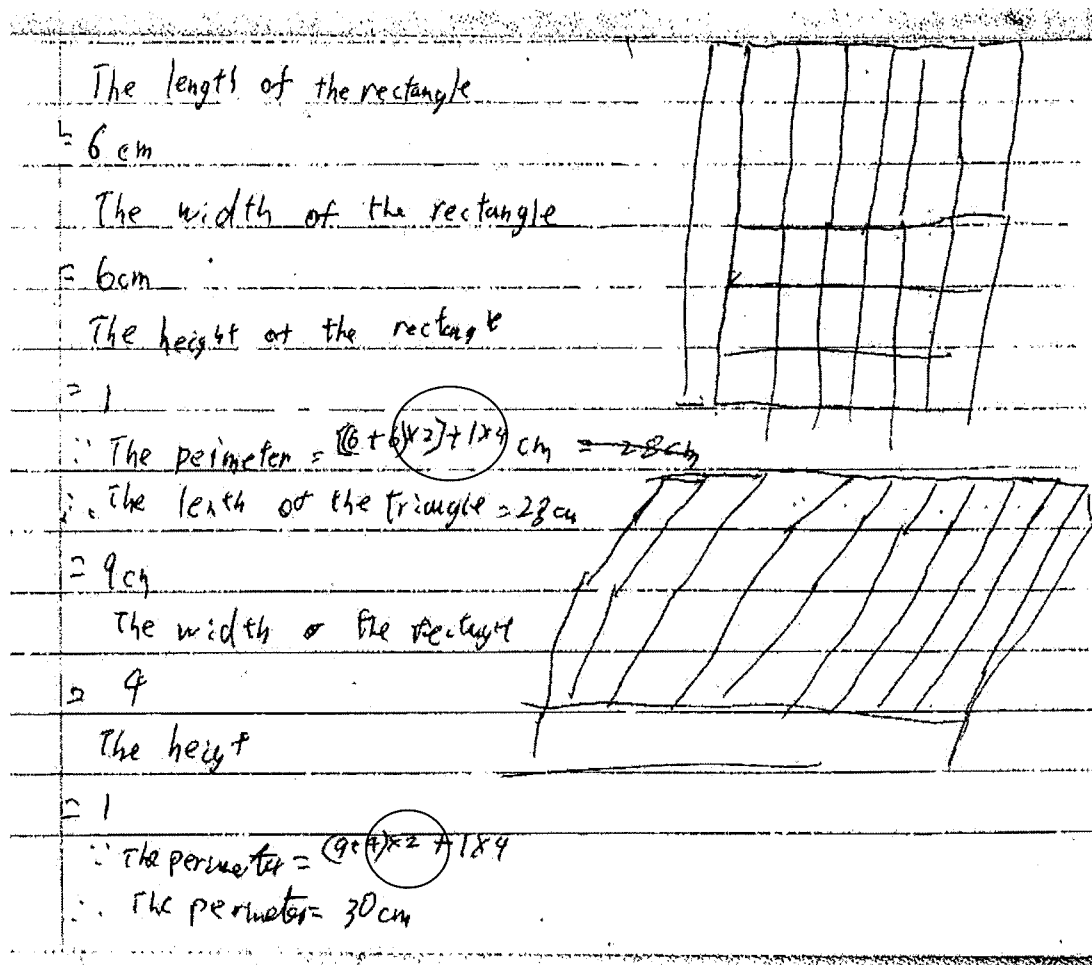 The length of the rectangle
= 6 cm
The width of the rectangle
= 6cm
The height of the rectangle
= 1
∵ The perimeter = [(6+6)×2]+1×4 cm = 28cm
∴ The lenth of the triangle = 28cm
= 9cm
The width of the rectangle
= 4
The height
= 1
∵ The perimeter = (9+4)×2 + 1×4
∴ The perimeter = 30cm